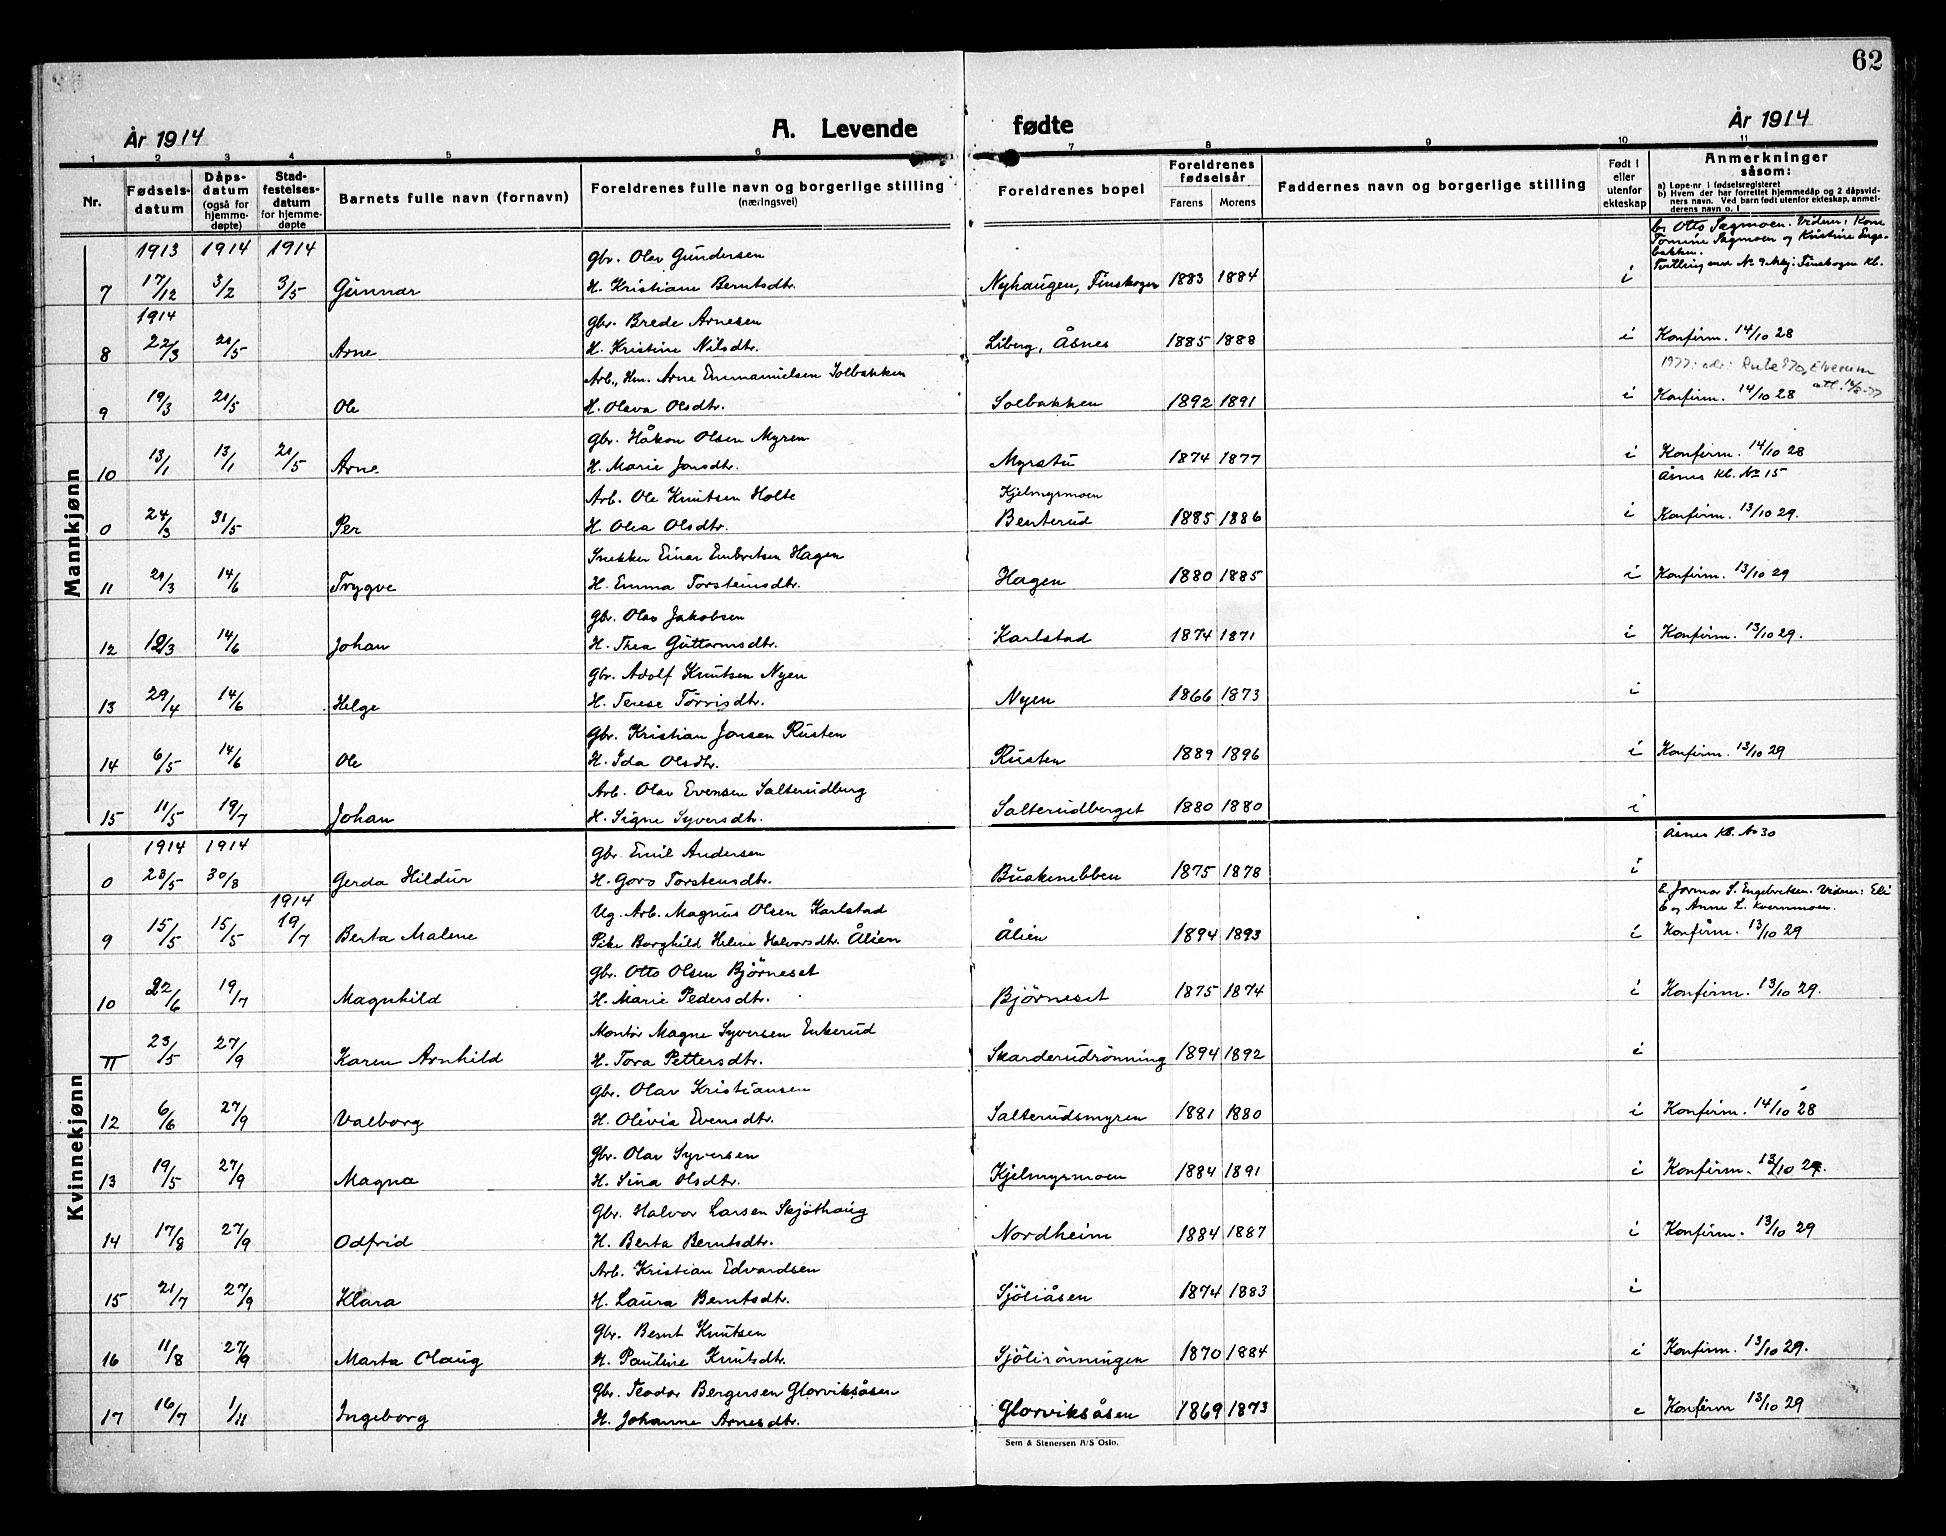 62
År 1914 A. Levende fødte År 1914
1 2 3 4 5 6 7 8 9 10 11
Nr. Fødselsdatum Dåpsdatum (også for hjemmedøpte) Stadfestelsesdatum for hjemmedøpte Barnets fulle navn (fornavn) Foreldrenes fulle navn og borgerlige stilling (næringsvei) Foreldrenes bopel Foreldrenes fødselsår Farens Morens Faddernes navn og borgerlige stilling Født i eller utenfor ekteskap Anmerkninger såsom: a) Løpe-nr i fødselsregisteret b) Hvem der har forrettet hjemmedåp og 2 dåpsvidners navn. Ved barn født utenfor ekteskap, anmelderens navn o. l
Mannkjønn
b, Otto Sagmoen. Vidner: Kom
Tomine Sagmoen og Kristine Engebakken.
1913 1914 1914 gbr. Olav Gundersen Tvilling med No 9 Mkj: Finskogen kl.
7 17/12 3/2 3/5 Gunnar H. Kristiane Berntsdtr. Nyhaugen, Finskogen 1883 1884 i
1914 gbr. Brede Arnesen
8 22/3 21/5 Arne H. Kristine Nilsdtr. Liberg, Åsnes 1885 1888 i Konfirm. 14/10 28
Arb., Hm. Arne Emmanuelsen Solbakken 1977: adr: Rute 870, Elverum
9 19/3 21/5 Ole H. Oleva Olsdtr. Solbakken 1892 1891 i Konfirm. 14/10 28
gbr. Håkon Olsen Myren
10 13/1 13/1 21/5 Arne H. Marie Jonsdtr. Myrstu 1874 1877 i Konfirm. 14/10 28
Åsnes kl. No 15
Arb. Ole Knutsen Holte Kjelmyrmoen
0 24/3 31/5 Per H. Olea Olsdtr. Benterud 1885 1886 i Konfirm. 13/10 29.
Snekker Einar Embretsen Hagen
11 21/3 14/6 Trygve H. Emma Torsteinsdtr. Hagen 1880 1885 i Konfirm. 13/10 29
gbr. Olav Jakobsen
12 12/3 14/6 Johan H. Thea Guttormsdtr. Karlstad 1874 1871 i Konfirm. 13/10 29.
gbr. Adolf Knutsen Nyen
13 29/4 14/6 Helge H. Terese Torrisdtr. Nyen 1866 1873 i
gbr. Kristian Jonsen Rusten
14 6/5 14/6 Ole H. Ida Olsdtr. Rusten 1889 1896 i Konfirm. 13/10 29
Arb. Olav Evensen Salterudberg
15 11/5 19/7 Johan H. Signe Syversdtr. Salterudberget 1880 1880 i
Kvinnekjønn
1914 1914 gbr. Emil Andersen Åsnes kl. No 30
0 23/5 30/8 Gerda Hildur H. Goro Torstensdtr. Buskenebben 1875 1878 i
1914 Ug. Arb. Magnus Olsen Karlstad b. Jormor S. Engebretsen. Vidner: Eli
E og Anne L. Kvernmoen.
9 15/5 15/5 19/7 Berta Malene Pike Borghild Helene Halvorsdtr. Ålien Ålien 1894 1893 i Konfirm. 13/10 29
gbr. Otto Olsen Björneset
10 22/6 19/7 Magnhild H. Marie Pedersdtr. Björneset 1875 1874 i Konfirm. 13/10 29.
Montör Magne Syversen Enkerud
11 23/5 27/9 Karen Arnhild H. Tora Pettersdtr. Skarderudrönning 1894 1892 i
gbr. Olav Kristiansen
12 6/6 27/9 Valborg H. Olivia Evensdtr. Salterudsmyren 1881 1880 i Konfirm. 14/10 28
gbr. Olav Syversen
13 19/5 27/9 Magna H. Sina Olsdtr. Kjelmyrmoen 1884 1891 i Konfirm. 13/10 29.
gbr. Halvor Larsen Skjöthaug
14 17/8 27/9 Odfrid H. Berta Berntsdtr. Nordheim 1884 1887 i Konfirm. 13/10 29
Arb. Kristian Edvardsen
15 21/7 27/9 Klara H. Laura Berntsdtr. Sjöliåsen 1874 1883 i
gbr. Bernt Knutsen
16 11/8 27/9 Marta Olaug H. Pauline Knutsdtr. Sjölirönningen 1870 1884 i Konfirm. 13/10 29.
gbr. Teodor Bergersen Glorviksåsen
17 16/7 1/11 Ingeborg H. Johanne Arnesdtr. Glorviksåsen 1869 1873 e Konfirm 13/10 29
Sem & Stenersen A/S Oslo.